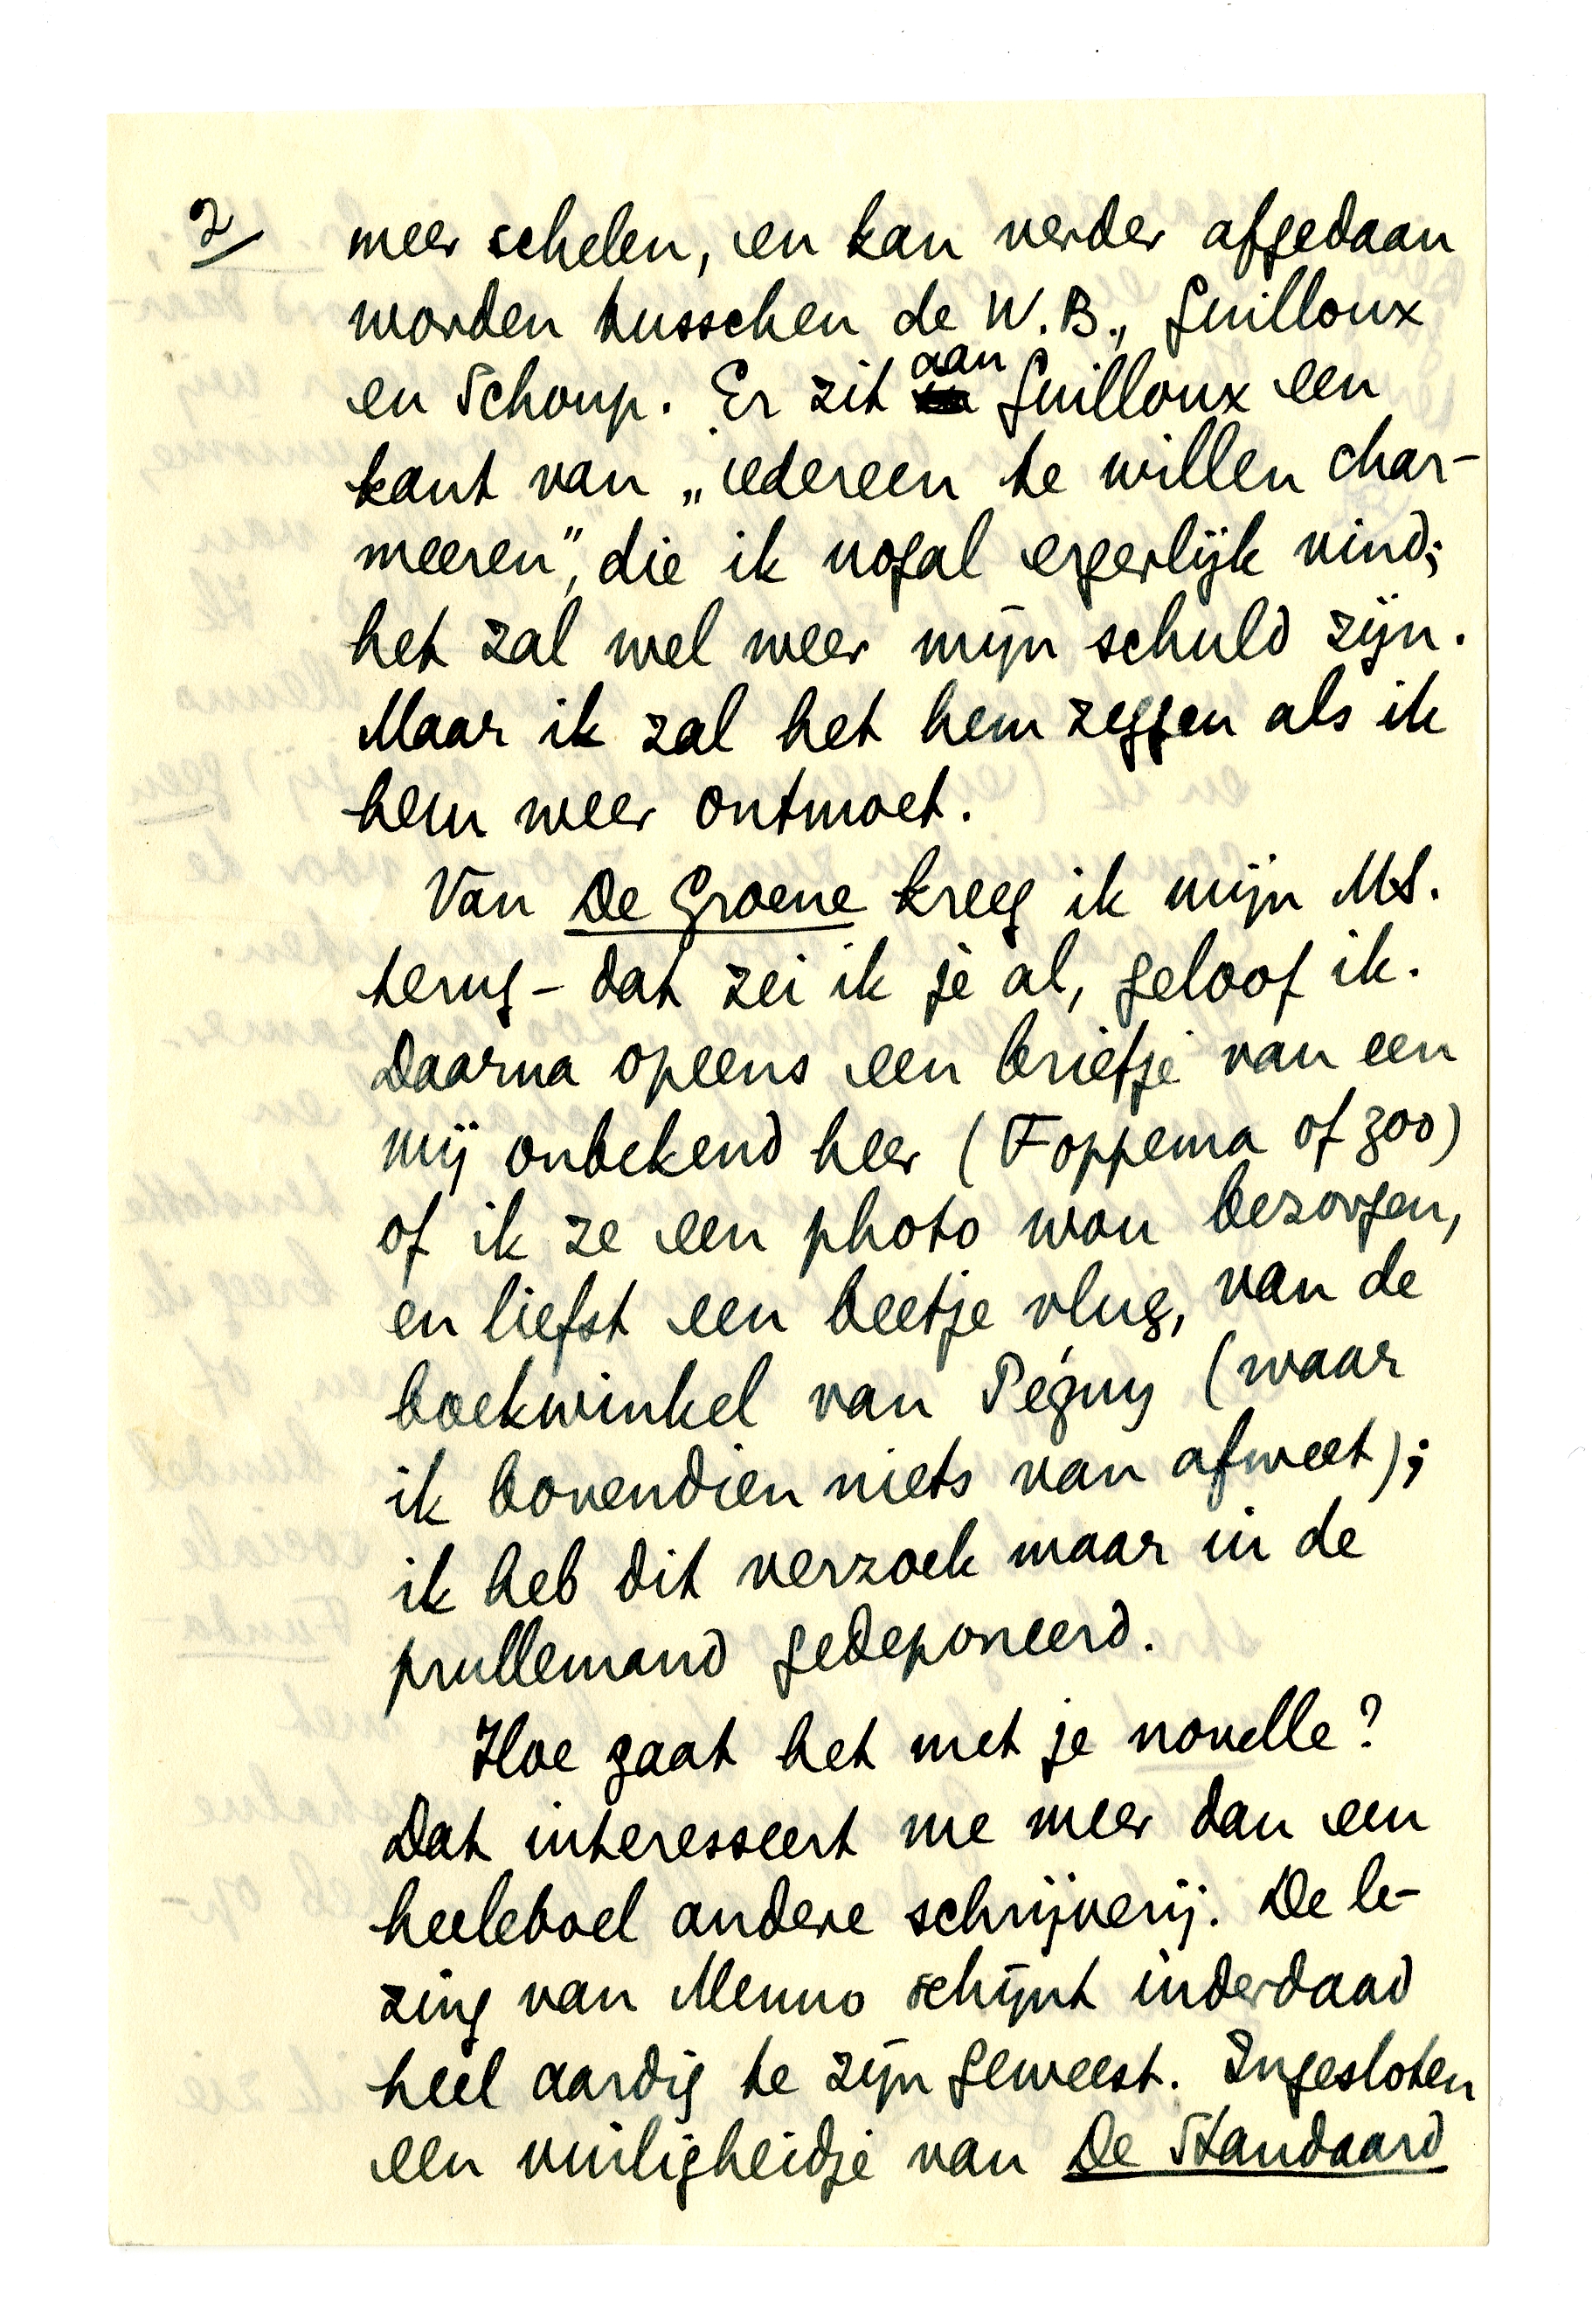 2/ meer schelen, en kan verder afgedaan
worden tusschen de W.B., Guilloux
en Schoup. Er zit aan Guilloux een
kant van „iedereen te willen char-
meeren”, die ik nogal ergerlijk vind;
het zal wel weer mijn schuld zijn.
Maar ik zal het hem zeggen als ik
hem weer ontmoet.
Van De Groene kreeg ik mijn MS.
terug – dat zei ik je al, geloof ik.
Daarna opeens een briefje van een
mij onbekend heer (Foppema of zoo)
of ik ze een photo wou bezorgen,
en liefst een beetje vlug, van de
boekwinkel van Péguy (waar
ik bovendien niets van afweet);
ik heb dit verzoek maar in de
prullemand gedeponeerd.
Hoe gaat het met je novelle?
Dat interesseert me meer dan een
heeleboel andere schrijverij. De le-
zing van Menno schijnt inderdaad
heel aardig te zijn geweest. Ingesloten
een vuiligheidje van De Standaard